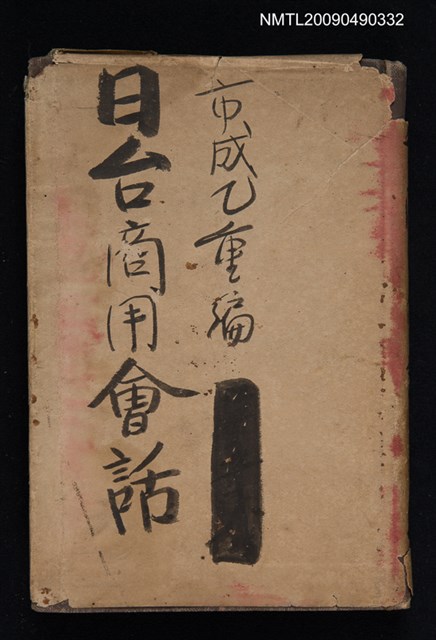 NMTL20090490332
市成乙重編
日台商用會話